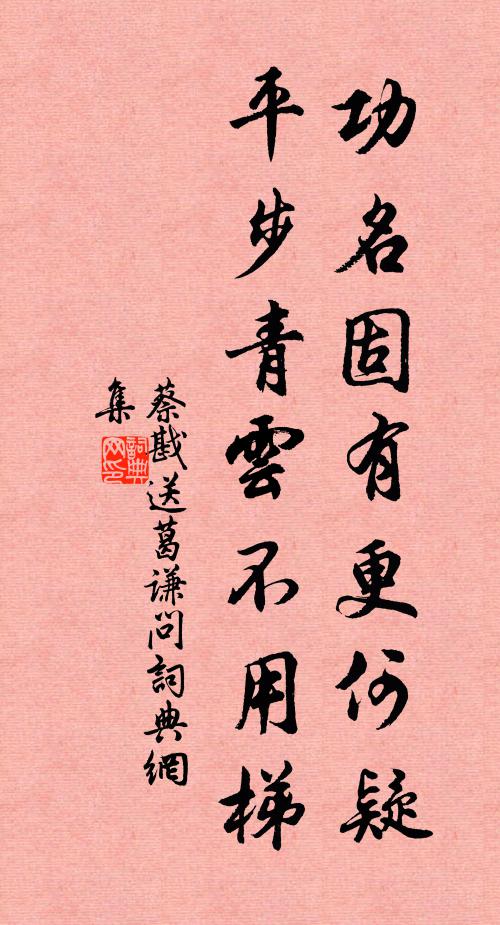 功名固有更何疑
平步青雲不用梯
蔡戡送葛谦问詞典網
集
詞典
网印